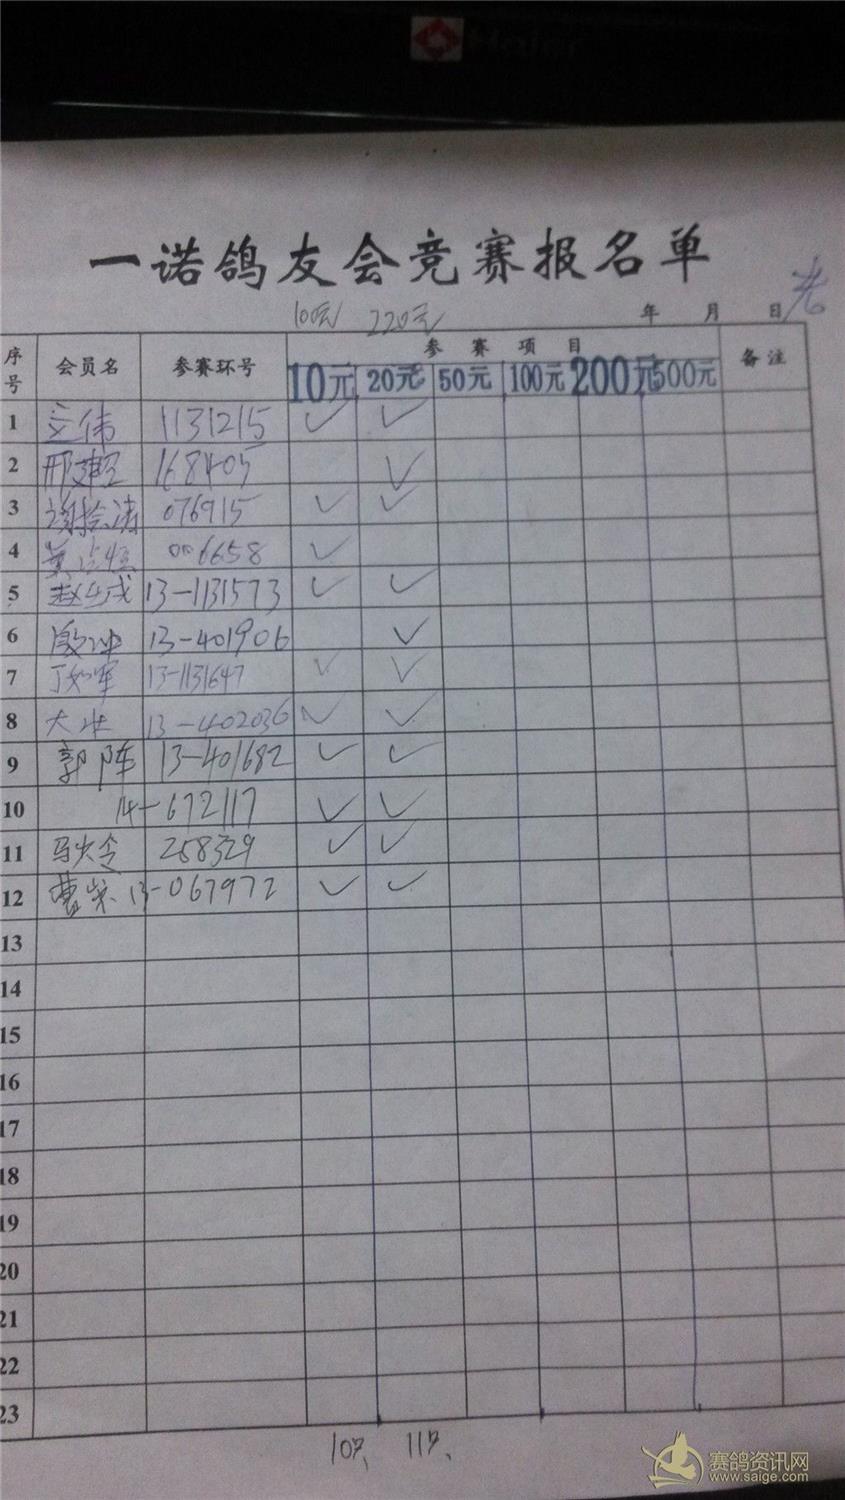 Haier
一诺鸽友会竞赛报名单
100元 220元 年 月 日
序号 会员名 参赛环号 参赛项目 备注
10元 20元 50元 100元 200元 500元
1 立伟 1131215 ✓ ✓
2 168405 ✓
3 076915 ✓ ✓
4 006658 ✓
5 13-1131573 ✓ ✓
6 13-401906 ✓
7 丁如军 13-1131647 ✓ ✓
8 13-402036 ✓ ✓
9 郭阵 13-401682 ✓ ✓
10 14-672117 ✓ ✓
11 258329 ✓ ✓
12 曹荣 13-067972 ✓ ✓
13
14
15
16
17
18
19
20
21
22
23
10只、 11只、
赛鸽资讯网
www.saige.com